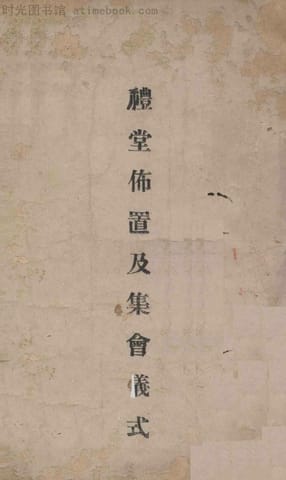 时光图书馆 atimebook.com
禮堂佈置及集會儀式